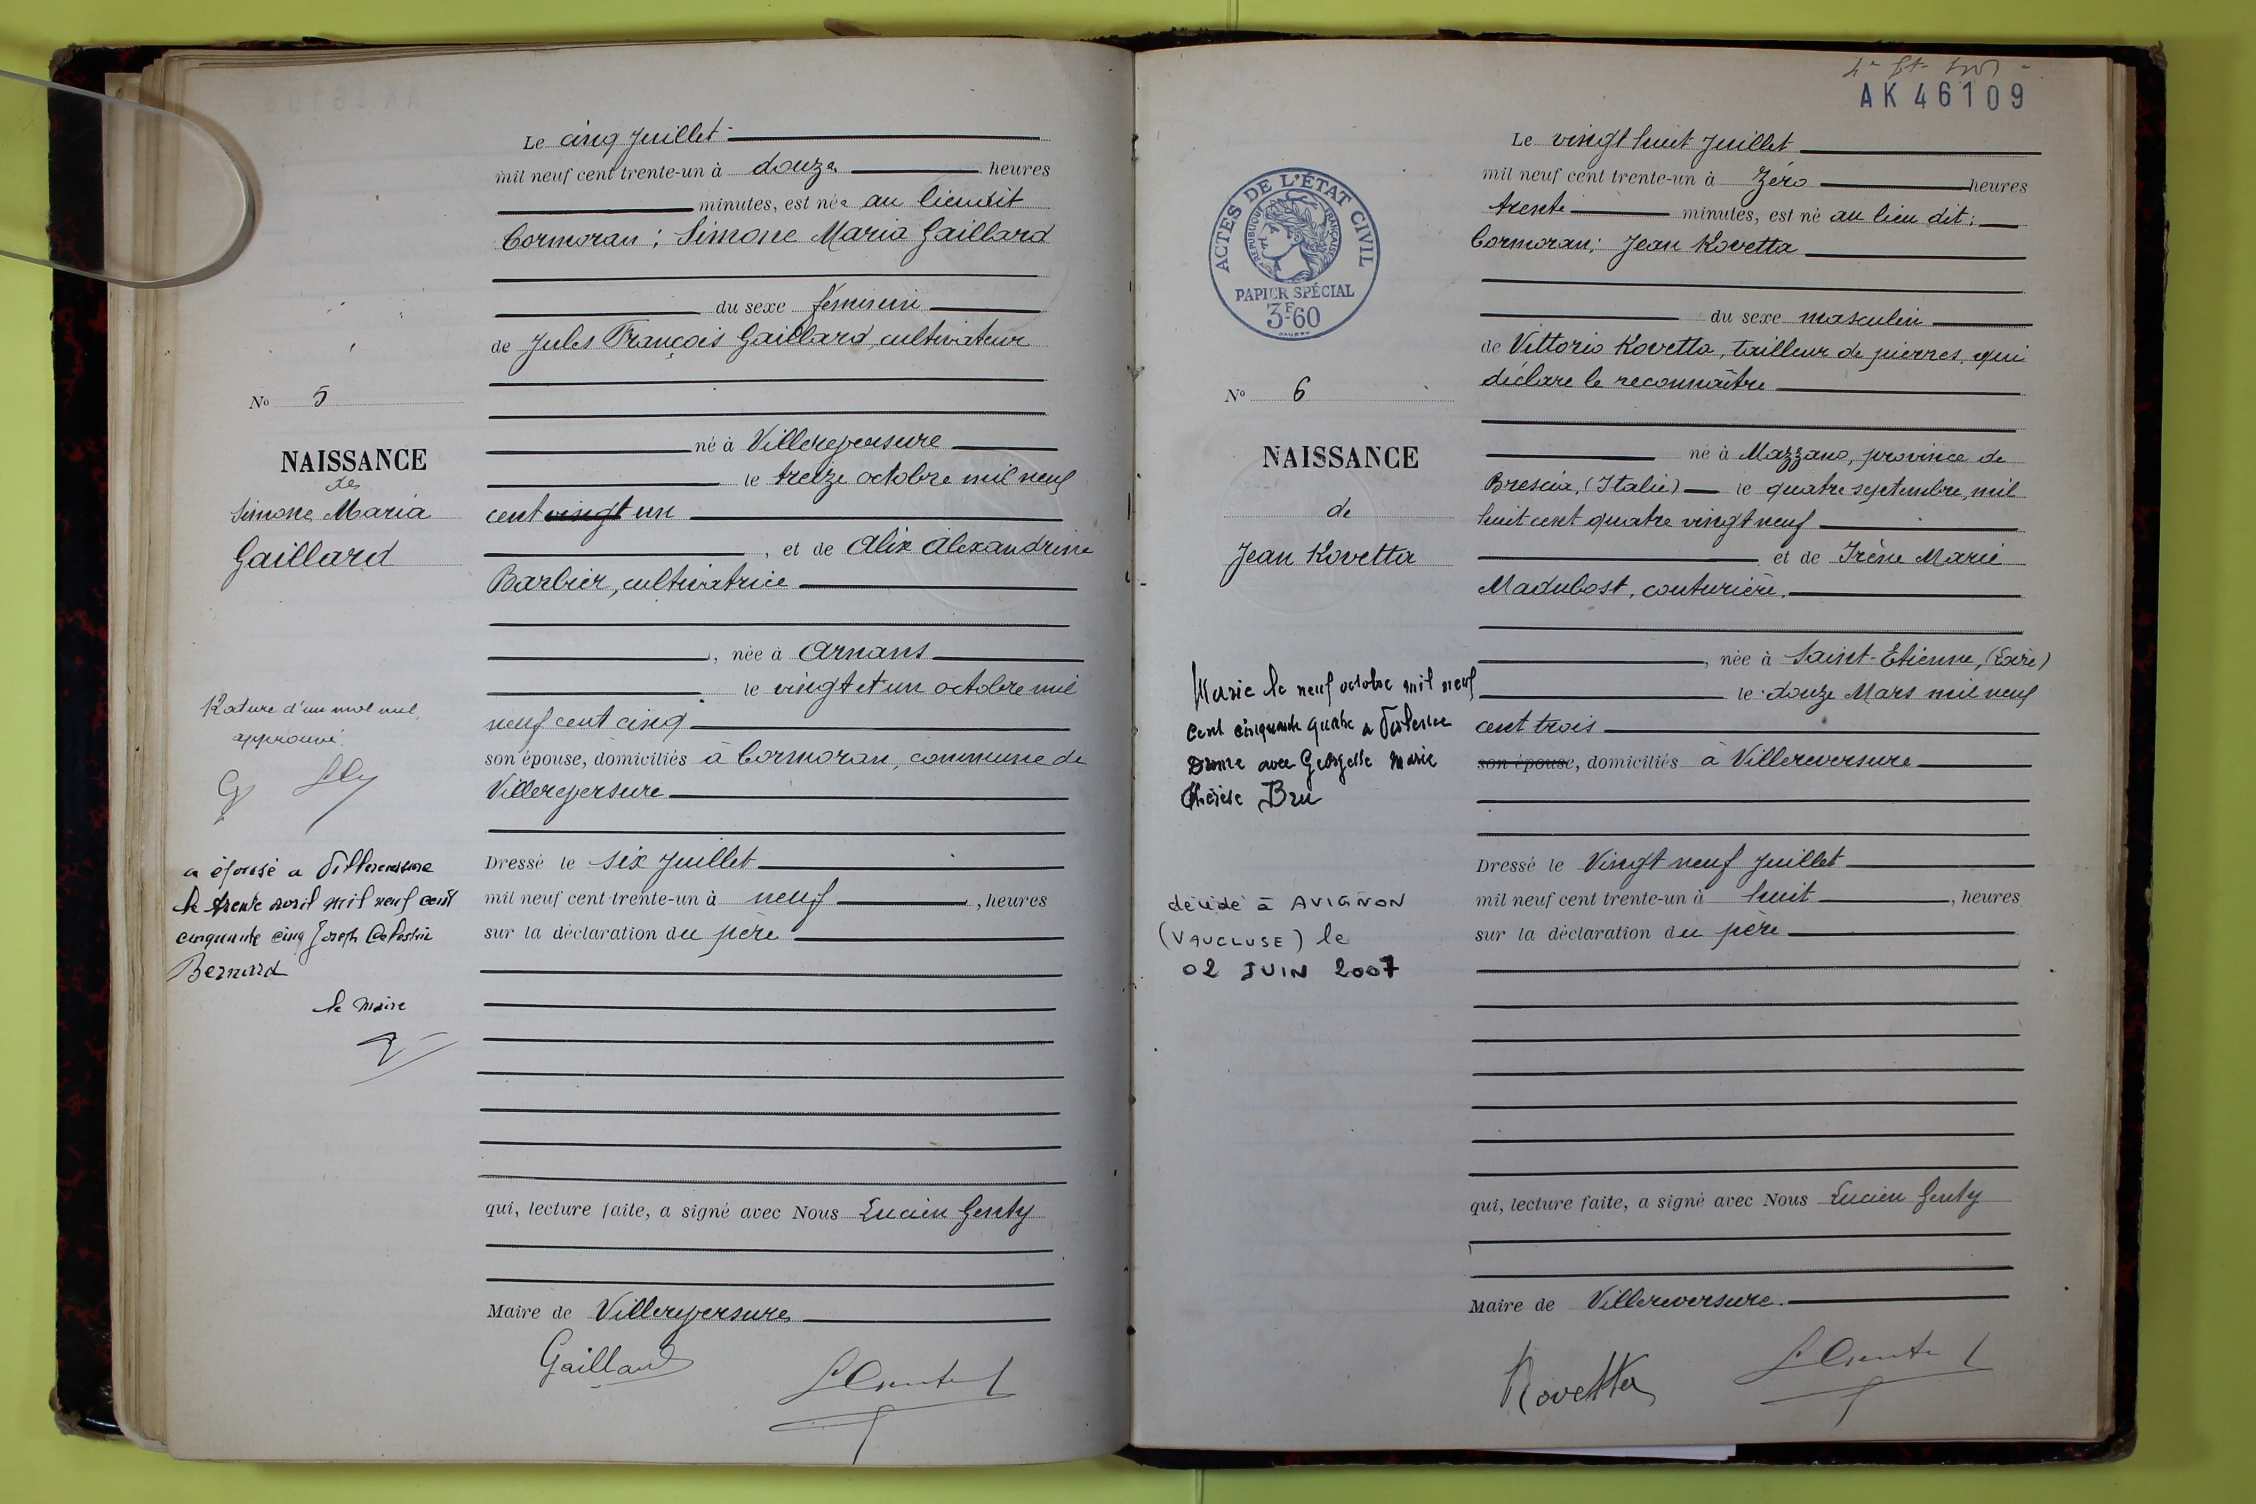 Le cinq Juillet
mil neuf cent trente-un à douze heures
minutes, est née au lieudit
Cormoran; Simone Maria Gaillard
du sexe féminin
de Jules François Gaillard, cultivateur
né à Villereversure
le treize octobre mil neuf
cent vingt un
, et de Alix Alexandrine
Barbier, cultivatrice
, née à Arnans
le vingt et un octobre mil
neuf cent cinq
son épouse, domiciliés à Cormoran, commune de
Villereversure
Dressé le six Juillet
mil neuf cent trente-un à neuf, heures
sur la déclaration du père
qui, lecture faite, a signé avec Nous Lucien Genty
Maire de Villereversure
Gaillard
No 5
NAISSANCE
de
Simone Maria
Gaillard
Rature d'un mot nul
approuvé.
a épousé a Villereversure
le trente avril mil neuf cent
cinquante cinq Joseph Celestin
Bernard
le Maire
AK 46109
ACTES DE L'ÉTAT CIVIL
RÉPUBLIQUE FRANÇAISE
PAPIER SPÉCIAL
3F60
No 6
NAISSANCE
de
Jean Rovetta
Marié le neuf octobre mil neuf
cent cinquante quatre a Valence
Drome avec Georgette Marie
Thérèse Bru
décidé à AVIGNON
(VAUCLUSE) le
02 JUIN 2007
Le vingt huit Juillet
mil neuf cent trente-un à Zéro heures
trente minutes, est né au lieu dit:
Cormoran; Jean Rovetta
du sexe masculin
de Vittorio Rovetta, tailleur de pierres, qui
déclare le reconnaître
né à Mazzano, province de
Brescia, (Italie) le quatre septembre mil
huit cent quatre vingt neuf
et de Irène Marie
Madubost, couturière.
, née à Saint-Etienne, (Loire)
le douze Mars mil neuf
cent trois
son épouse, domiciliés à Villereversure
Dressé le Vingt neuf Juillet
mil neuf cent trente-un à huit, heures
sur la déclaration du père
qui, lecture faite, a signé avec Nous Lucien Genty
Maire de Villereversure.
Rovetta